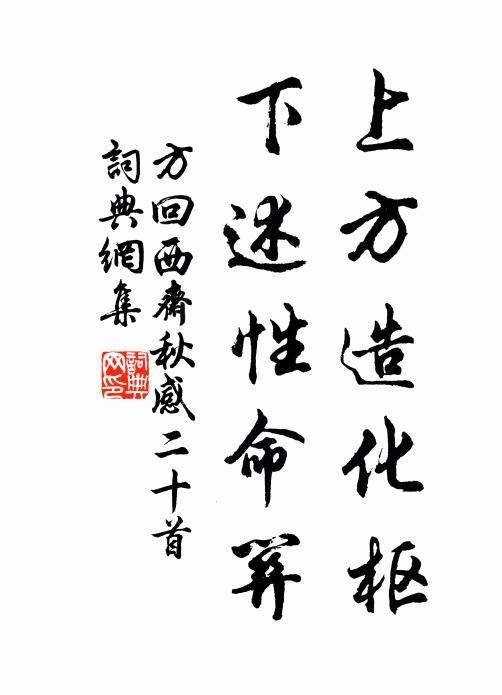 上方造化枢
下述性命關
方回西齋秋感二十首
詞典網集
詞典
网印